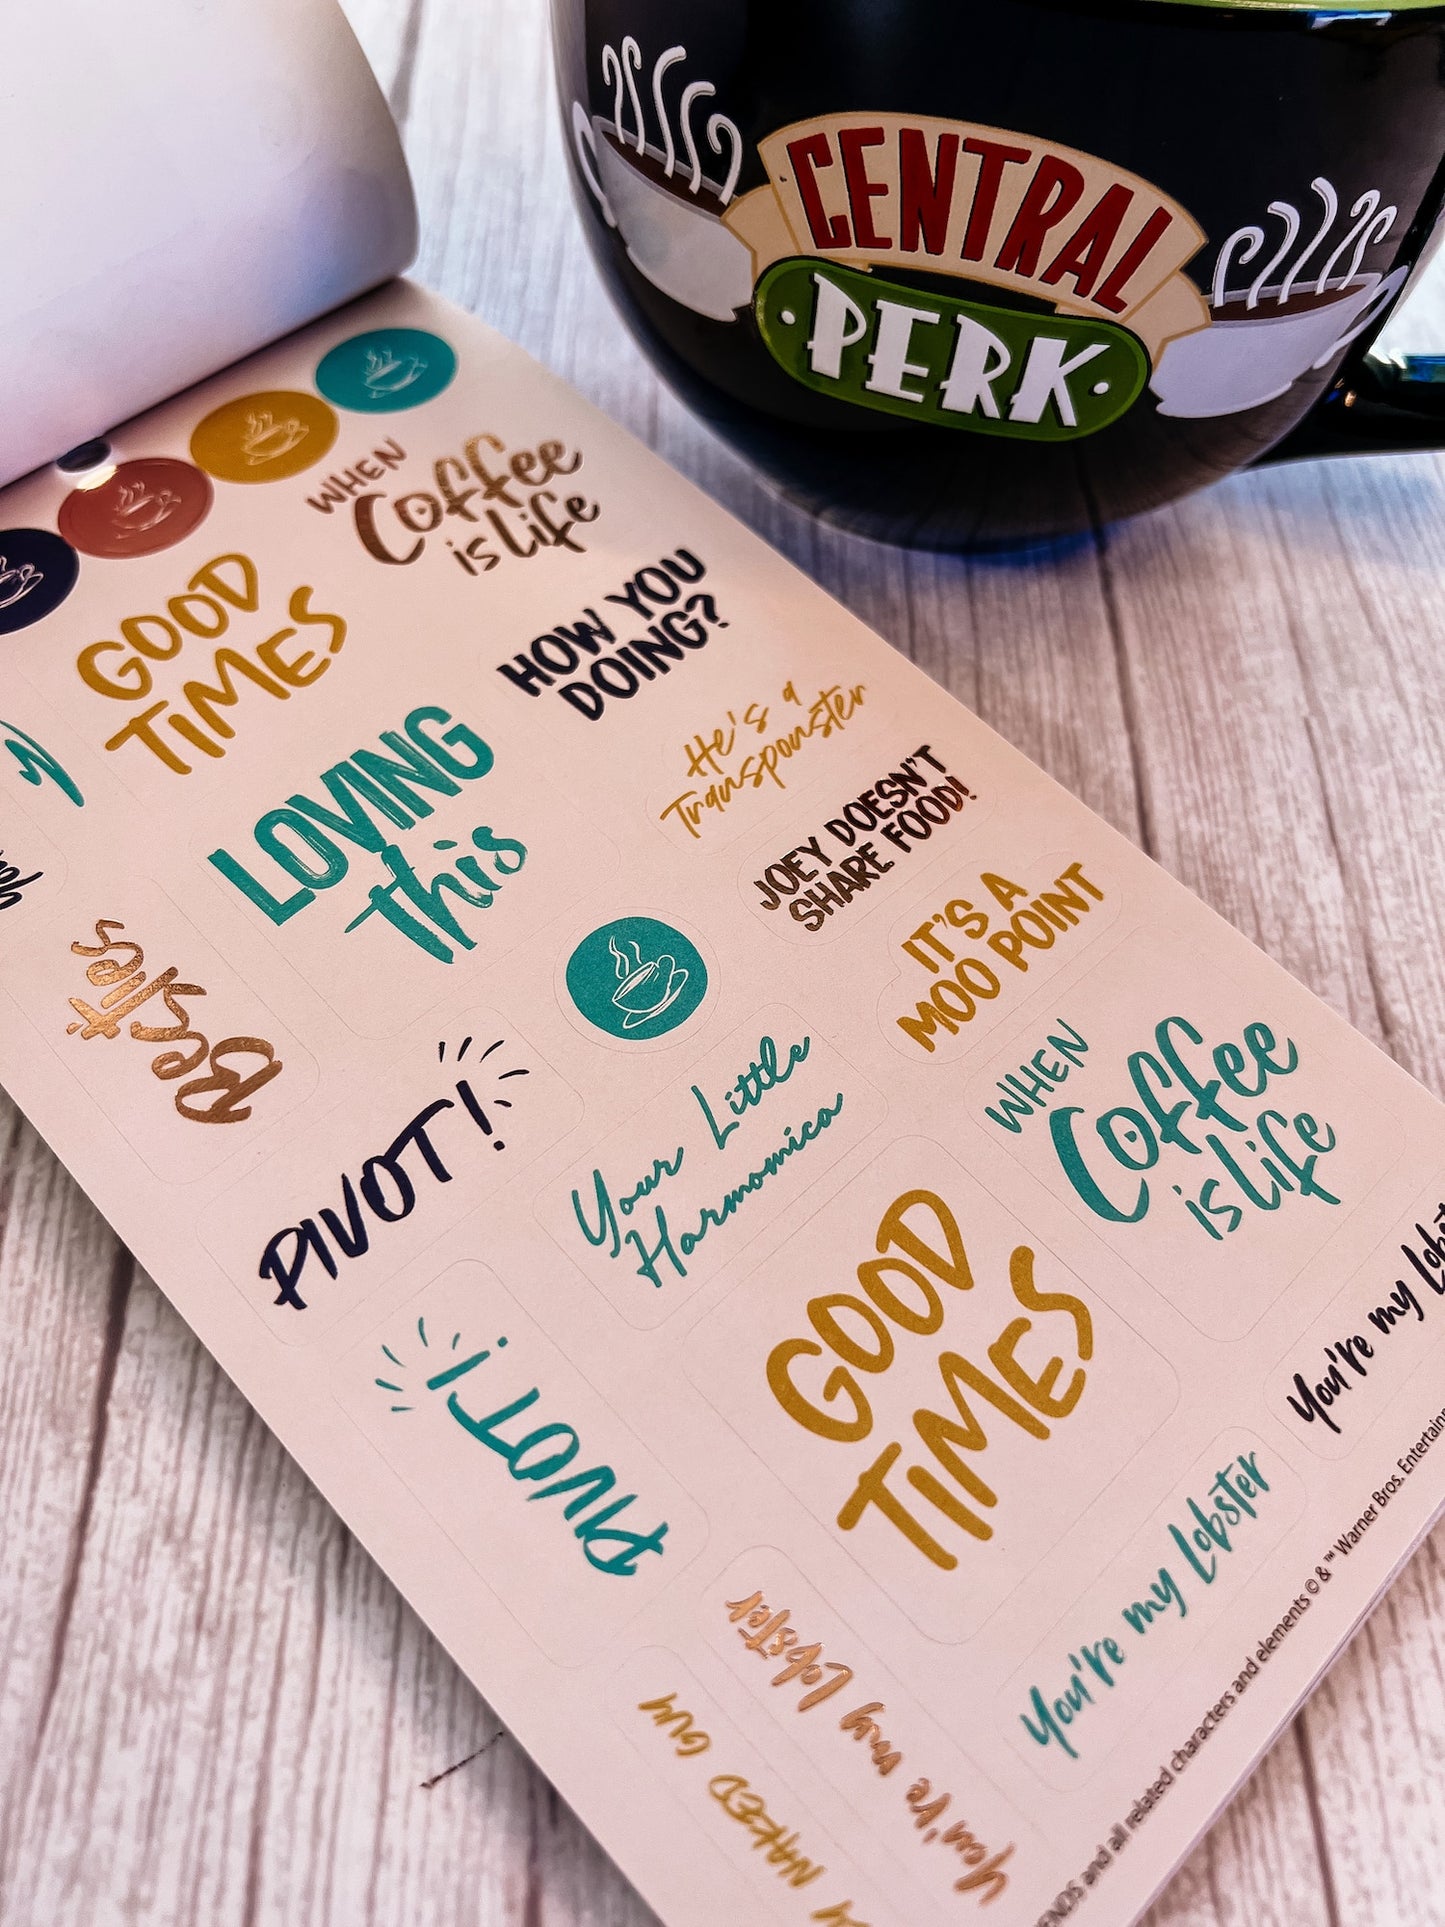 CENTRAL
PERK
WHEN
Coffee
is life
GOOD
TIMES
HOW YOU
DOING?
LOVING
this
He's a
Transponster
JOEY DOESN'T
SHARE FOOD!
IT'S A
MOO POINT
Bestie
PIVOT!
Your Little
Harmonica
WHEN
Coffee
is life
PIVOT!
GOOD
TIMES
You're my
You're my Lobster
You're my Lobster
NAKED GUY
and all related characters and elements © & ™ Warner Bros.